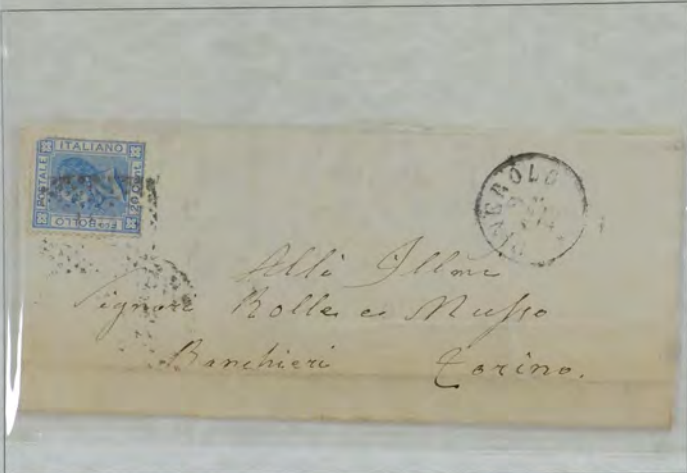 ITALIANO
POSTALE
20 Cent
FCO BOLLO
PINEROLO
Alli Illmi
Signori Rolle e Musso
Banchieri Torino.